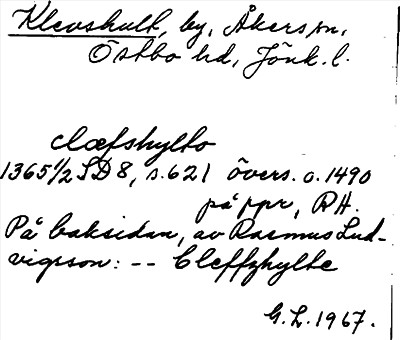 Klevshult, by, Åkers sn,
Östbo hd, Jönk. l.
clæfshylto
1365 1/2 SD 8, s. 621 övers. c. 1490
på ppr, RA.
På baksidan, av Rasmus Lud-
vigsson: -- Cleffzhylte
G. L. 1967.